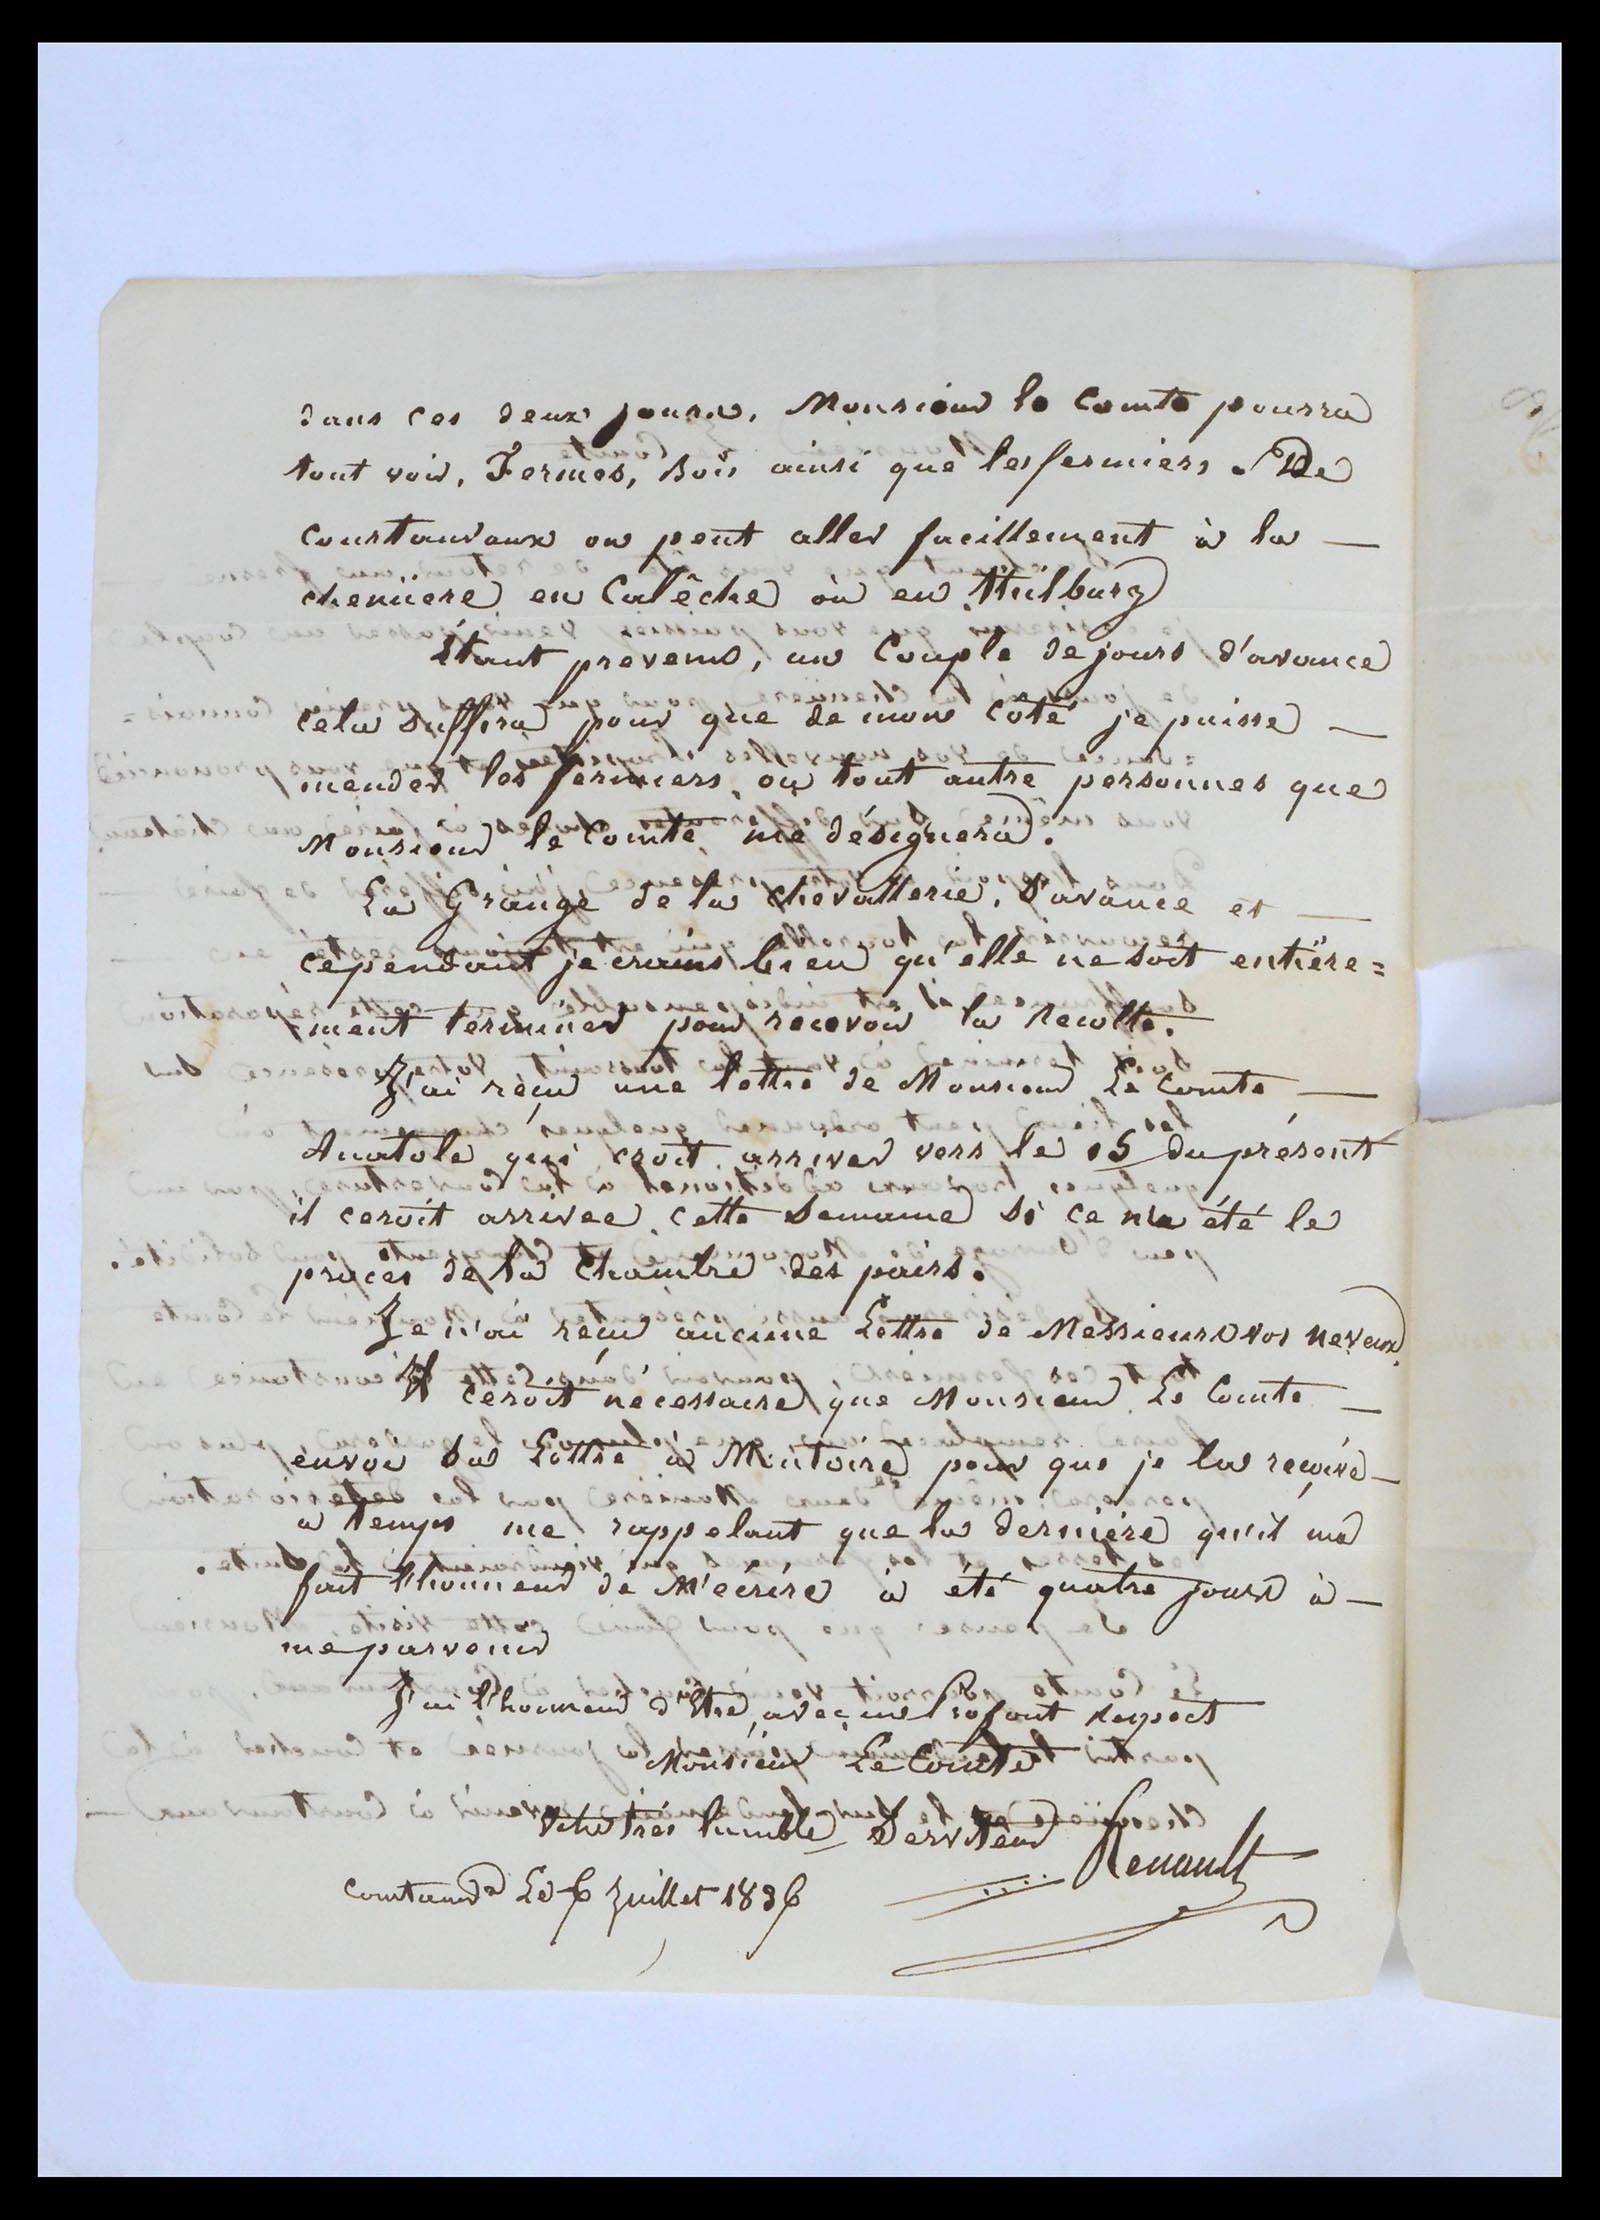 dans ces deux jours, Monsieur le Comte pourra
tout voir, Fermes, Bois ainsi que les fermiers. De
Courtauvaux on peut aller facillement à la —
cheniiere en Calêche où en
Étant prevenu, un Couple de jours d'avance
cela suffira pour que de mon coté je puisse —
mender les fermiers ou tout autre personnes que
Monsieur le Comte me désignera.
La Grange de la chevallerie, S'avance et —
cependant je crains bien qu'elle ne soit entiére=
ment terminer pour recevoir la Recolte.
J'ai réçu une lettre de Monsieur Le Comte —
Anatole qui croit arriver vers le 15 du présent
il ceroit arrivee cette Semaine Si ce n'a été le
procés de la Chambre des pairs.
Je n'ai reçu aucune Lettre de Messieurs vos neveux.
Il ceroit nécessaire que Monsieur Le Comte —
envoi Sa Lettre à Montoire pour que je la reçoive —
a temps me rappelant que la derniére qu'il ma
fait l'honneur de M'écrire à été quatre jours à —
me parvenir
J'ai l'honneur d'Etre avec un Profont Respect
Monsieur Le Comte
Votre trés humble Serviteur
Renault
Le 6 Juillet 1836